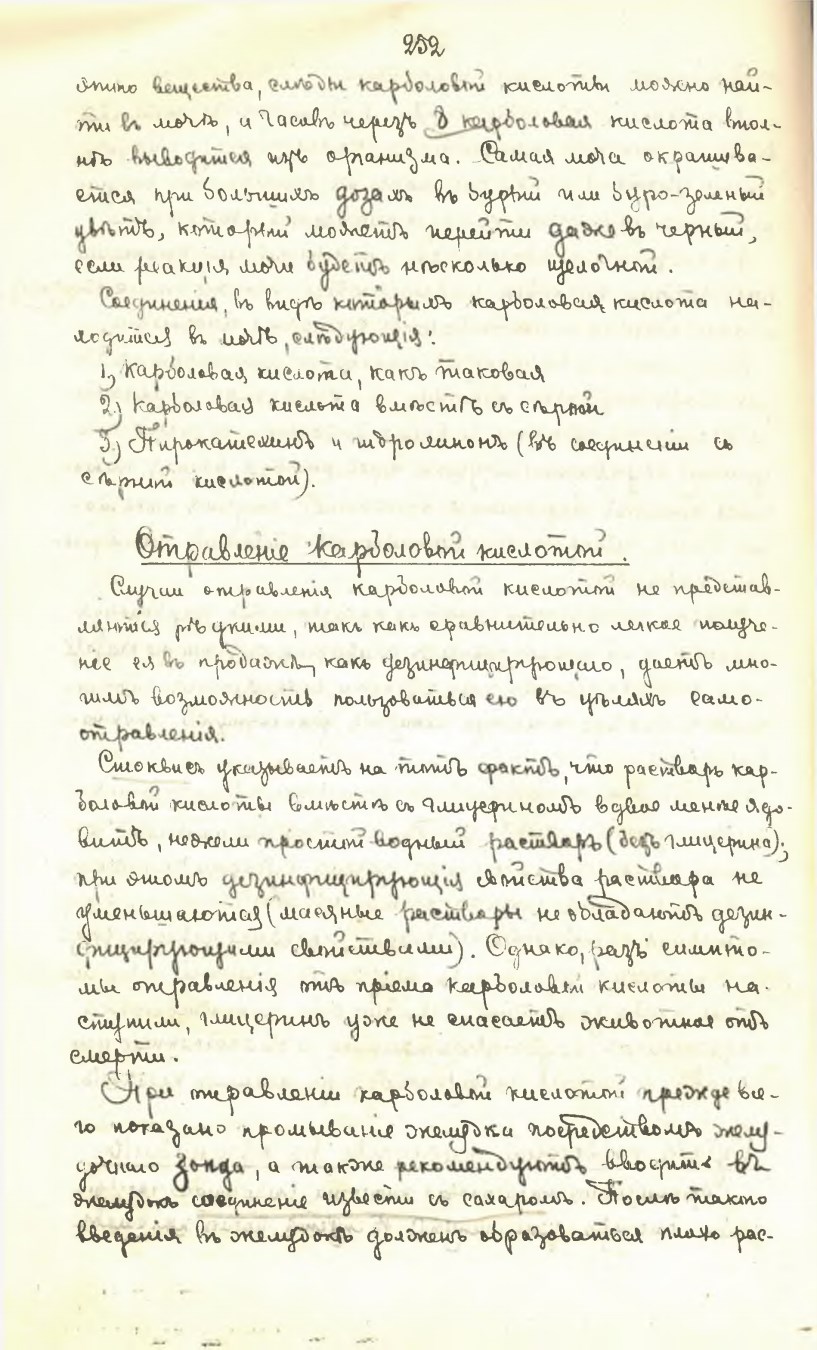 252
этого вещества, слѣды карболовой кислоты можно най-
ти въ мочѣ, и часовъ черезъ 8 карболовая кислота впол-
нѣ выводится изъ организма. Самая моча окрашива-
ется при большихъ дозахъ въ бурый или буро-зеленый
цвѣтъ, который можетъ перейти даже въ черный,
если реакція мочи будетъ нѣсколько щелочной.
Соединенія, въ видѣ которыхъ карболовая кислота на-
ходится въ мочѣ, слѣдующія:
1, Карболовая кислота, какъ таковая
2.) Карболовая кислота вмѣстѣ съ сѣрной
3.) Пирокатехинъ и гидрохинонъ (въ соединеніи съ
сѣрной кислотой).
Отравленіе Карболовой кислотой.
Случаи отравленія карболовой кислотой не представ-
ляются рѣдкими, такъ какъ сравнительно легкое получе-
ніе ея въ продажѣ, какъ дезинфицирующаго, даетъ мно-
гимъ возможность пользоваться ею въ цѣляхъ само-
отравленія.
Стоквисъ указываетъ на тотъ фактъ, что растворъ кар-
боловой кислоты вмѣстѣ съ глицериномъ вдвое менѣе ядо-
витъ, нежели простой водный растворъ (безъ глицерина);
при этомъ дезинфицирующія свойства раствора не
уменьшаются (масляные растворы не обладаютъ дезин-
фицирующими свойствами). Однако, разъ симпто-
мы отравленія отъ пріема карболовой кислоты на-
ступили, глицеринъ уже не спасаетъ животное отъ
смерти.
При отравленіи карболовой кислотой прежде все-
го показано промываніе желудка посредствомъ желу-
дочнаго зонда, а также рекомендуютъ вводить въ
желудокъ соединеніе извести съ сахаромъ. Послѣ такого
введенія въ желудокъ долженъ образоваться плохо рас-